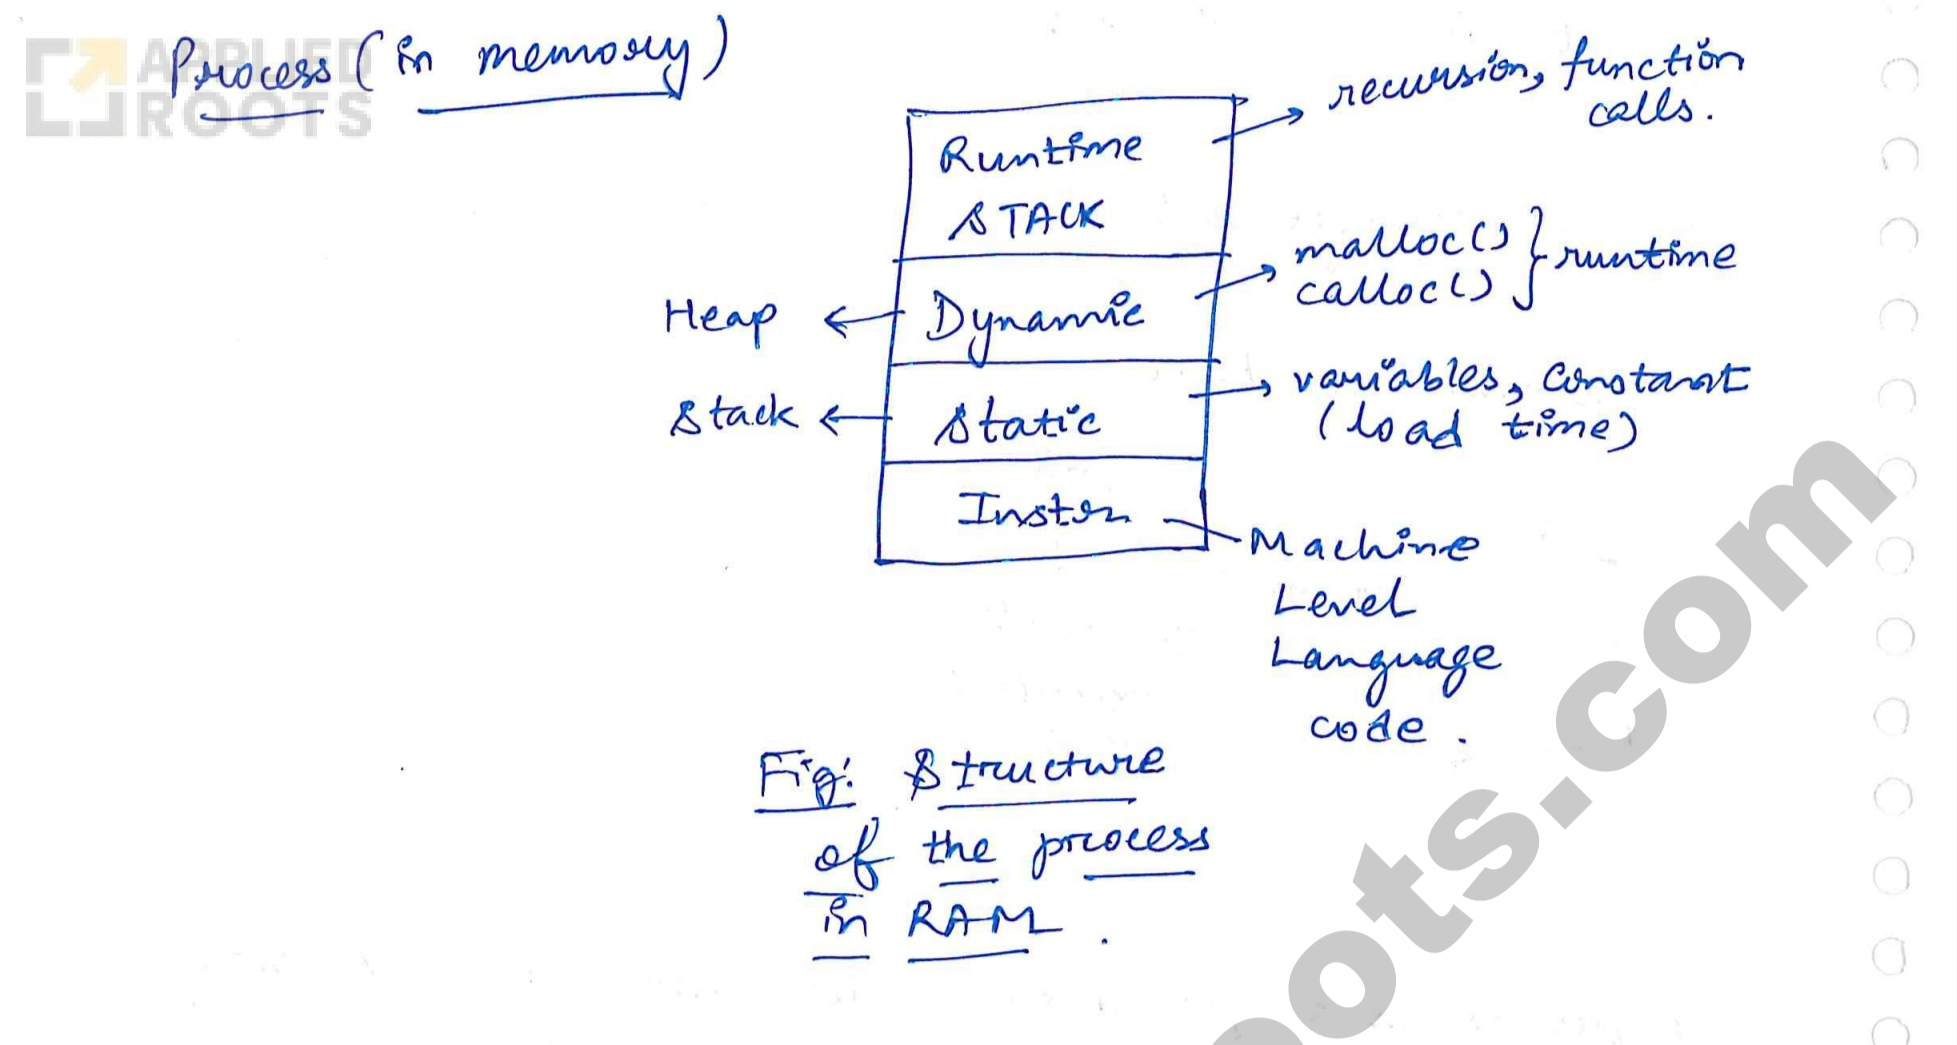 APPLIED
ROOTS
Process (in memory)
Runtime
STACK
recursion, function
calls.
Heap
Dynamic
malloc()
calloc() } runtime
Stack
Static
variables, constant
(load time)
Instrn
Machine
Level
Language
code.
Fig: Structure
of the process
in RAM.
oots.com